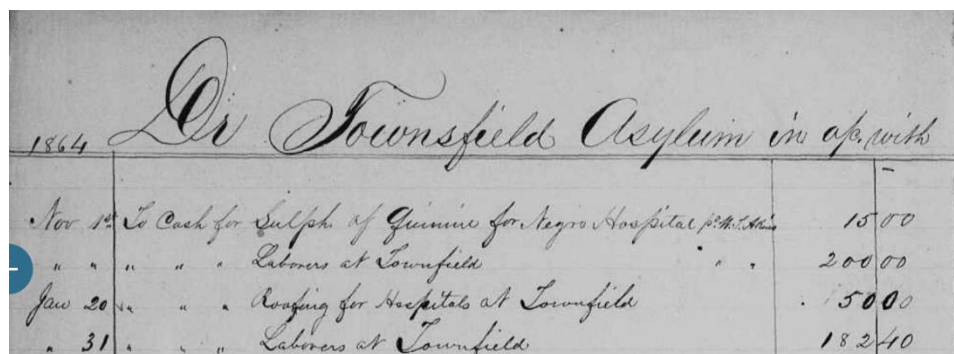 1864 Dr Townsfield Asylum in a/c. with
Nov 1st To Cash for Sulph. of Quinine for Negro Hospital pr. W. T. 15 00
" " " " " Laborers at Townfield " " 200 00
Jan 20 " " " Roofing for Hospitals at Townfield 50 00
" 31 " " " Laborers at Townfield 182 40